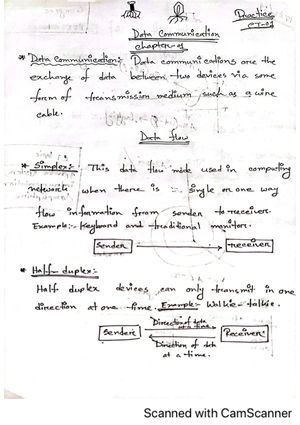 Practice
CT-01
Data Communication
chapter-1
* Data communication:- Data communications are the
exchange of data between two devices via some
form of transmission medium such as a wire
cable.
Data flow
* Simplex:- This data flow mode used in computing
network when there is single or one way
flow information from sender to receiver.
Example:- Keyboard and traditional monitor.
Sender receiver
* Half-duplex:-
Half duplex devices can only transmit in one
direction at one time. Example:- Walkie-talkie.
Direction of data
at a time
Sender Receiver
Direction of data
at a time.
Scanned with CamScanner